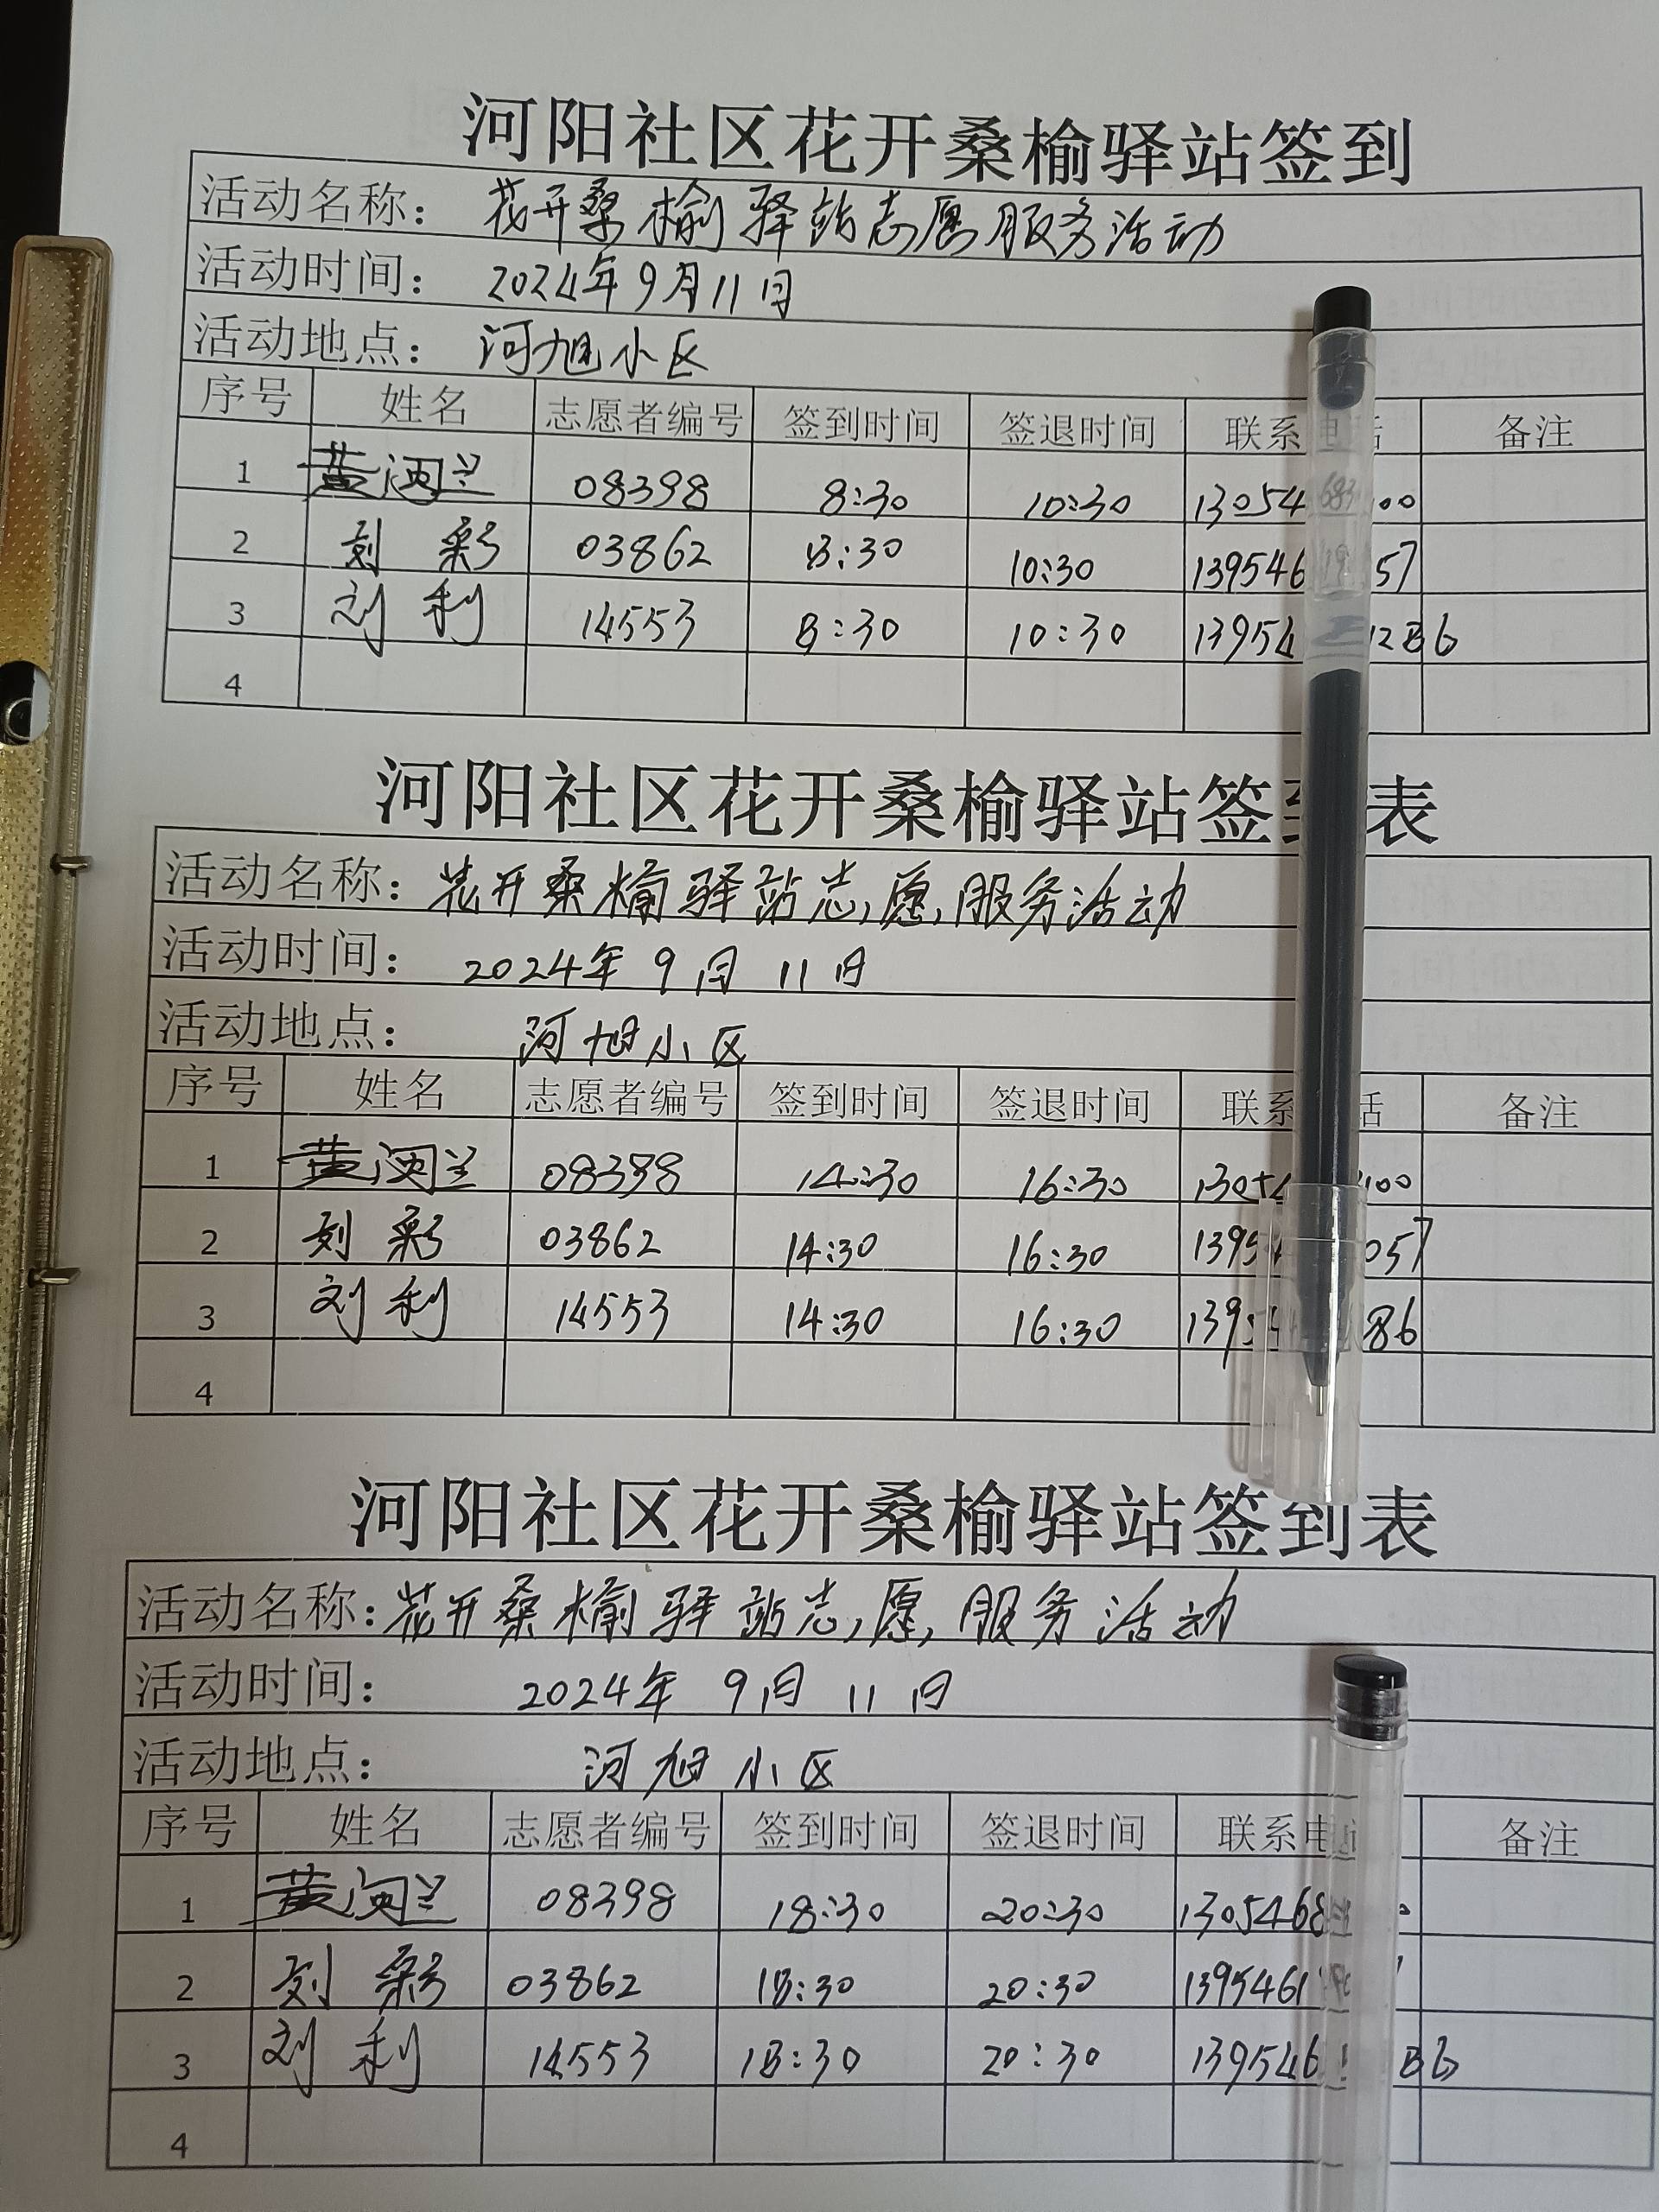 河阳社区花开桑榆驿站签到
活动名称： 花开桑榆驿站志愿服务活动
活动时间： 2024年9月11日
活动地点： 河旭小区
序号 姓名 志愿者编号 签到时间 签退时间 联系电话 备注
1 黄 兰 08398 8:30 10:30
2 刘彩 03862 8:30 10:30
3 刘利 14553 8:30 10:30
4
河阳社区花开桑榆驿站签到表
活动名称： 花开桑榆驿站志愿服务活动
活动时间： 2024年9月11日
活动地点： 河旭小区
序号 姓名 志愿者编号 签到时间 签退时间 联系 话 备注
1 黄 兰 08398 14:30 16:30
2 刘彩 03862 14:30 16:30
3 刘利 14553 14:30 16:30
4
河阳社区花开桑榆驿站签到表
活动名称： 花开桑榆驿站志愿服务活动
活动时间： 2024年9月11日
活动地点： 河旭小区
序号 姓名 志愿者编号 签到时间 签退时间 联系电 备注
1 黄 兰 08398 18:30 20:30
2 刘彩 03862 18:30 20:30
3 刘利 14553 18:30 20:30
4